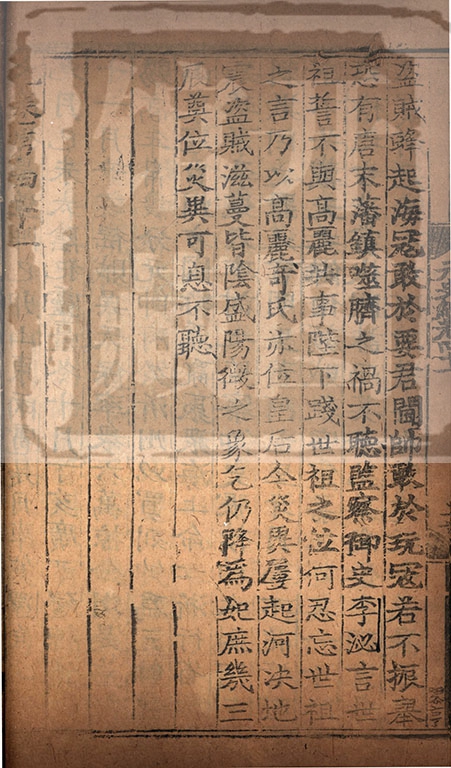 盜賊蜂起海冦敢於要君閫帥敢於玩寇若不振舉
恐有唐末藩鎮噬臍之禍不聽監察御史李泌言世
祖誓不與高麗共事陛下踐世祖之位何忍忘世祖
之言乃以高麗奇氏亦位皇后今災異屢起河决地
震盜賊滋蔓皆陰盛陽微之象乞仍降為妃庶幾三
辰奠位災異可息不聽